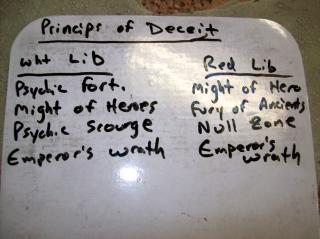 Princips of Deceit
Wht Lib
Psychic Fort.
Might of Heroes
Psychic Scourge
Emperor's Wrath
Red Lib
Might of Hero
Fury of Ancients
Null Zone
Emperor's
Wrath